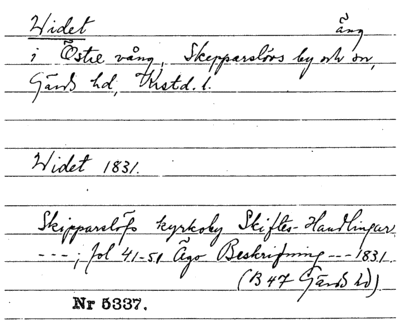 Widet äng
i Östre vång, Skepparslövs by och sn,
Gärds hd, Krstd. l.
Widet 1831.
Skipparslöfs kyrkoby Skiftes-Handlingar
---; fol 41-51 Ägo Beskrifning --- 1831
(B 47 Gärds hd)
Nr 5337.